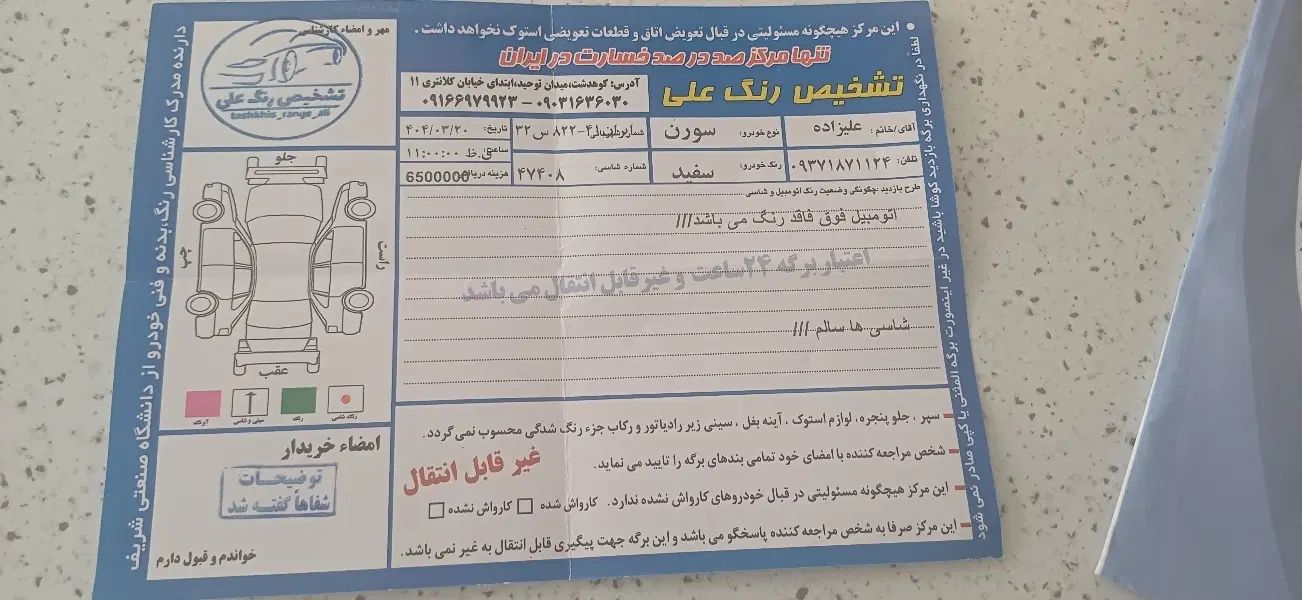 این مرکز هیچگونه مسئولیتی در قبال تعویض اتاق و قطعات تعویضی استوک نخواهد داشت.
تنها مرکز صد در صد خسارت در ایران
تشخیص رنگ علی
آدرس: کوهدشت، میدان توحید، ابتدای خیابان کلانتری ۱۱
۰۹۱۶۶۹۷۹۹۲۳ – ۰۹۰۳۱۶۳۶۰۳۰
آقای/خانم: علیزاده
نوع خودرو: سورن
۸۲۲ س ۳۲
تاریخ: ۴۰۴/۰۳/۲۰
ساعت: ۱۱:۰۰:۰۰ ق.ظ
تلفن: ۰۹۳۷۱۸۷۱۱۲۴
رنگ خودرو: سفید
شماره شاسی: ۴۷۴۰۸
هزینه 6500000
طرح بازدید: چگونگی وضعیت رنگ اتومبیل و شاسی
اتومبیل فوق فاقد رنگ می باشد///
اعتبار برگه ۲۴ ساعت و غیرقابل انتقال می باشد
شاسی ها سالم ///
سپر ، جلو پنجره، لوازم استوک ، آینه بغل ، سینی زیر رادیاتور و رکاب جزء رنگ شدگی محسوب نمی گردد.
شخص مراجعه کننده با امضای خود تمامی بندهای برگه را تایید می نماید.
این مرکز هیچگونه مسئولیتی در قبال خودروهای کارواش نشده ندارد.
کارواش شده
کارواش نشده
غیر قابل انتقال
این مرکز صرفا به شخص مراجعه کننده پاسخگو می باشد و این برگه جهت پیگیری قابل انتقال به غیر نمی باشد.
لطفاً در نگهداری برگه بازدید کوشا باشید در غیر اینصورت برگه المثنی یا کپی صادر نمی شود
مهر و امضاء کارشناس
تشخیص رنگ علی
tashkhis_range_ali
جلو
راست
چپ
عقب
رنگ شاسی
رنگ
سینی و شاسی
امضاء خریدار
توضیحات
شفاهاً گفته شد
خواندم و قبول دارم
دارنده مدرک کارشناسی رنگ بدنه و فنی خودرو از دانشگاه صنعتی شریف